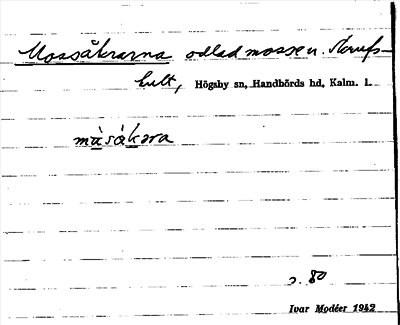 Mossåkrarna odlad mosse u. Klrufs-
hult, Högsby sn, Handbörds hd, Kalm. l.
màsåkara
s. 80
Ivar Modéer 1942